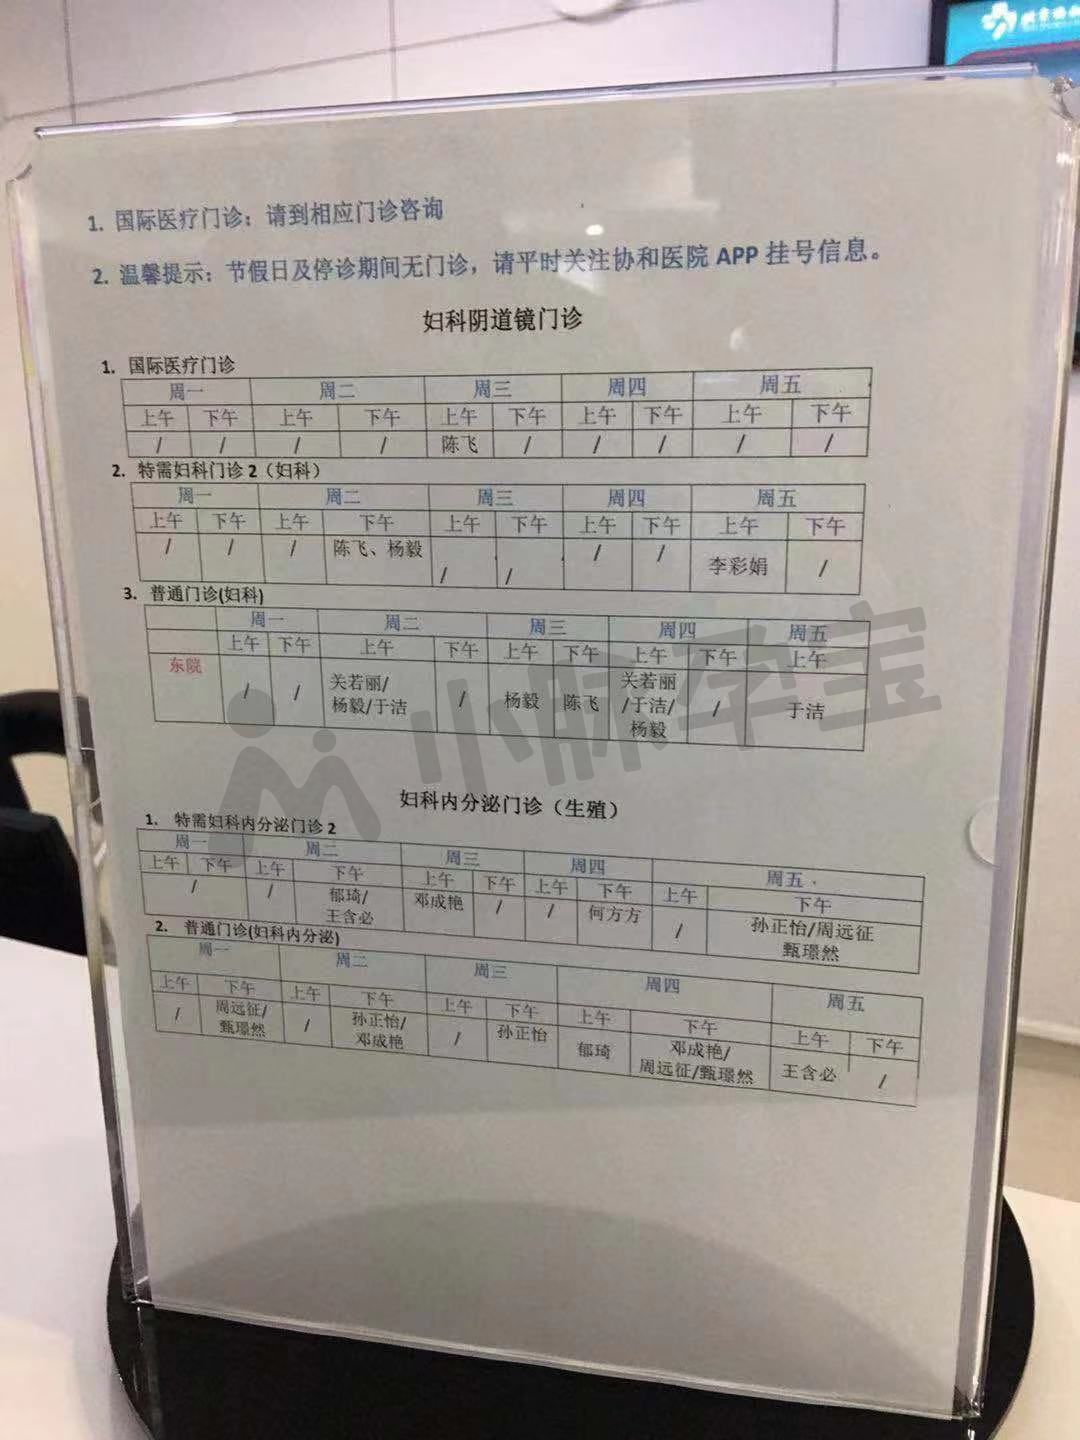 1. 国际医疗门诊：请到相应门诊咨询
2. 温馨提示：节假日及停诊期间无门诊，请平时关注协和医院 APP 挂号信息。
妇科阴道镜门诊
1. 国际医疗门诊
周一 周二 周三 周四 周五
上午 下午 上午 下午 上午 下午 上午 下午 上午 下午
/ / / / 陈飞 / / / / /
2. 特需妇科门诊 2（妇科）
周一 周二 周三 周四 周五
上午 下午 上午 下午 上午 下午 上午 下午 上午 下午
/ / / 陈飞、杨毅 / / / / 李彩娟 /
3. 普通门诊(妇科)
周一 周二 周三 周四 周五
上午 下午 上午 下午 上午 下午 上午 下午 上午
东院 / / 关若丽/ 杨毅/于洁 / 杨毅 陈飞 关若丽 /于洁/ 杨毅 / 于洁
妇科内分泌门诊（生殖）
1. 特需妇科内分泌门诊 2
周一 周二 周三 周四 周五
上午 下午 上午 下午 上午 下午 上午 下午 上午 下午
/ / 郁琦/ 王含必 邓成艳 / / 何方方 / 孙正怡/周远征 甄璟然
2. 普通门诊(妇科内分泌)
周一 周二 周三 周四 周五
上午 下午 上午 下午 上午 下午 上午 下午 上午 下午
/ 周远征/ 甄璟然 / 孙正怡/ 邓成艳 / 孙正怡 郁琦 邓成艳/ 周远征/甄璟然 王含必 /
小师孕宝